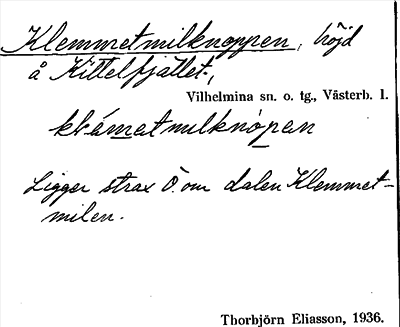 Klemmetmilknoppen, höjd
å Kittelfjället,
Vilhelmina sn. o. tg., Västerb. l.
klämmetmilknopen
Ligger strax Ö. om dalen Klemmet-
milen.
Thorbjörn Eliasson, 1936.